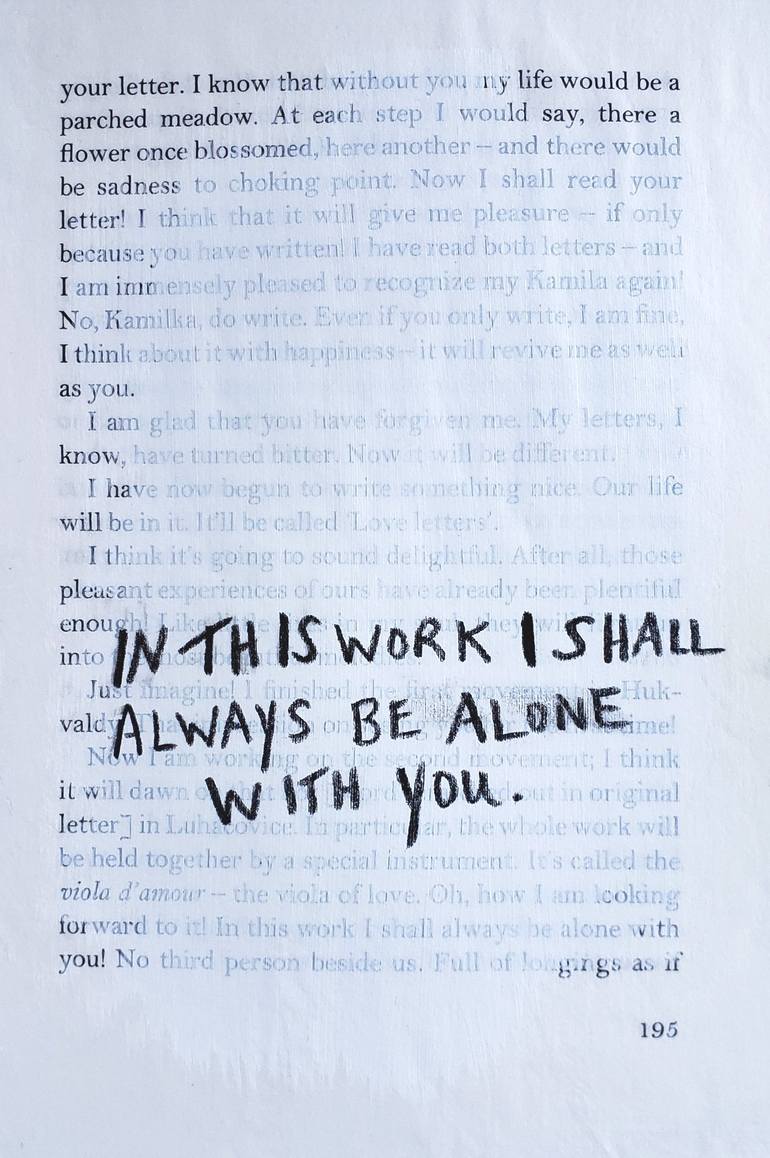 your letter. I know that without you my life would be a
parched meadow. At each step I would say, there a
flower once blossomed, here another – and there would
be sadness to choking point. Now I shall read your
letter! I think that it will give me pleasure – if only
because you have written! I have read both letters – and
I am immensely pleased to recognize my Kamila again!
No, Kamilka, do write. Even if you only write, I am fine,
I think about it with happiness – it will revive me as well
as you.
I am glad that you have forgiven me. My letters, I
know, have turned bitter. Now it will be different.
I have now begun to write something nice. Our life
will be in it. It'll be called 'Love letters'.
I think it's going to sound delightful. After all, those
pleasant experiences of ours have already been plentiful
enough! Like little in my they will
into the most
IN THIS WORK I SHALL
Just imagine! I finished the first movement in Huk-
valdy. That on time!
ALWAYS BE ALONE
Now I am working on the second movement; I think
it will dawn out in original
WITH YOU.
letter] in Luhačovice. In particular, the whole work will
be held together by a special instrument. It's called the
viola d'amour – the viola of love. Oh, how I am looking
forward to it! In this work I shall always be alone with
you! No third person beside us. Full of longings as if
195